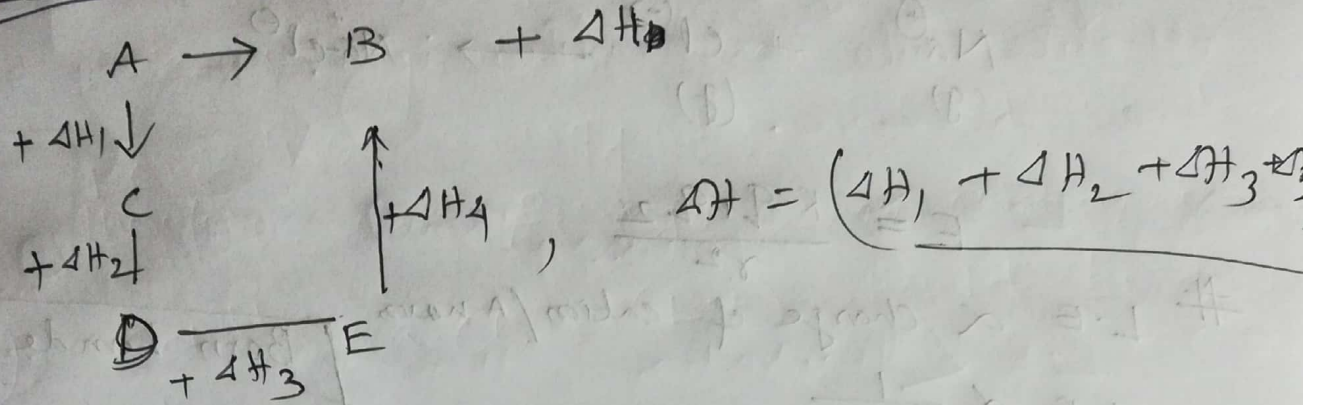 A → B + ΔH
+ ΔH1 ↓
C
+ ΔH2
+ΔH4 , ΔH = (ΔH1 + ΔH2 + ΔH3 +
D E
+ ΔH3